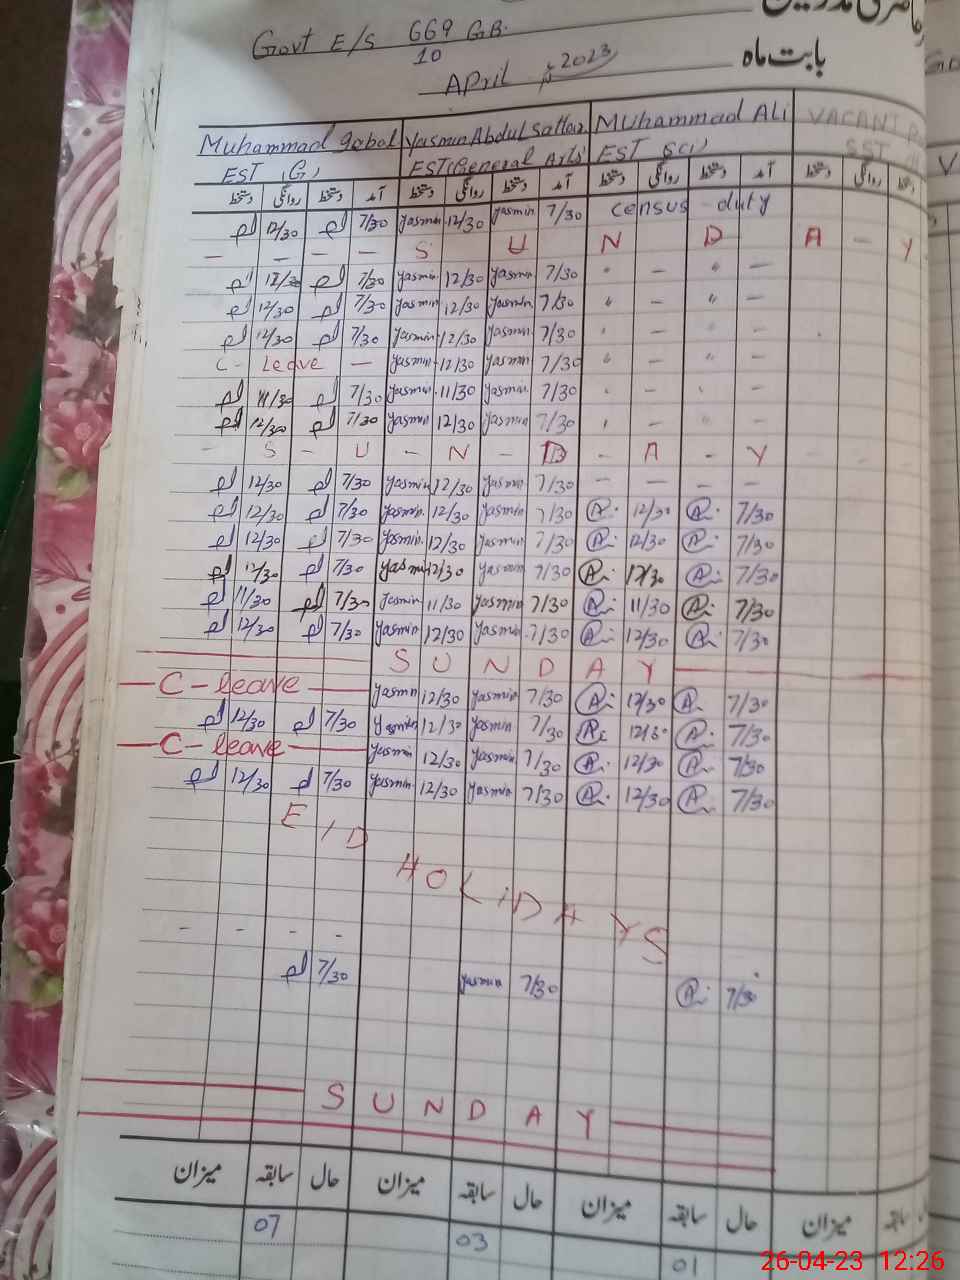 Govt E/S 669 GB.
10
April 2023 بابت ماہ
Muhammad Iqbal Yasmin Abdul Sattar Muhammad Ali VACANT
EST (G) EST (General Arts) EST Sci) SST
دستخط روانگی دستخط آمد دستخط روانگی دستخط آمد دستخط روانگی دستخط آمد دستخط روانگی
12/30 7/30 Yasmin 12/30 Yasmin 7/30 census duty
- - - - S U N D A - Y
12/30 7/30 Yasmin 12/30 Yasmin 7/30 " - " -
12/30 7/30 Yasmin 12/30 Yasmin 7/30 " - " -
12/30 7/30 Yasmin 12/30 Yasmin 7/30 " - " -
C- leave - Yasmin 12/30 Yasmin 7/30 " - " -
11/30 7/30 Yasmin 11/30 Yasmin 7/30 - -
12/30 7/30 Yasmin 12/30 Yasmin 7/30 - -
- S - U - N - D - A - Y
12/30 7/30 Yasmin 12/30 Yasmin 7/30 - - - -
12/30 7/30 Yasmin 12/30 Yasmin 7/30 12/30 7/30
12/30 7/30 Yasmin 12/30 Yasmin 7/30 12/30 7/30
12/30 7/30 Yasmin 12/30 Yasmin 7/30 12/30 7/30
11/30 7/30 Yasmin 11/30 Yasmin 7/30 11/30 7/30
12/30 7/30 Yasmin 12/30 Yasmin 7/30 12/30 7/30
S U N D A Y
C - leave Yasmin 12/30 Yasmin 7/30 12/30 7/30
12/30 7/30 Yasmin 12/30 Yasmin 7/30 12/30 7/30
C - leave Yasmin 12/30 Yasmin 7/30 12/30 7/30
12/30 7/30 Yasmin 12/30 Yasmin 7/30 12/30 7/30
EID HOLIDAYS
- - - -
7/30 Yasmin 7/30 7/30
S U N D A Y
میزان سابقہ حال میزان سابقہ حال میزان سابقہ حال میزان سابقہ
07 03 01
26-04-23 12:26